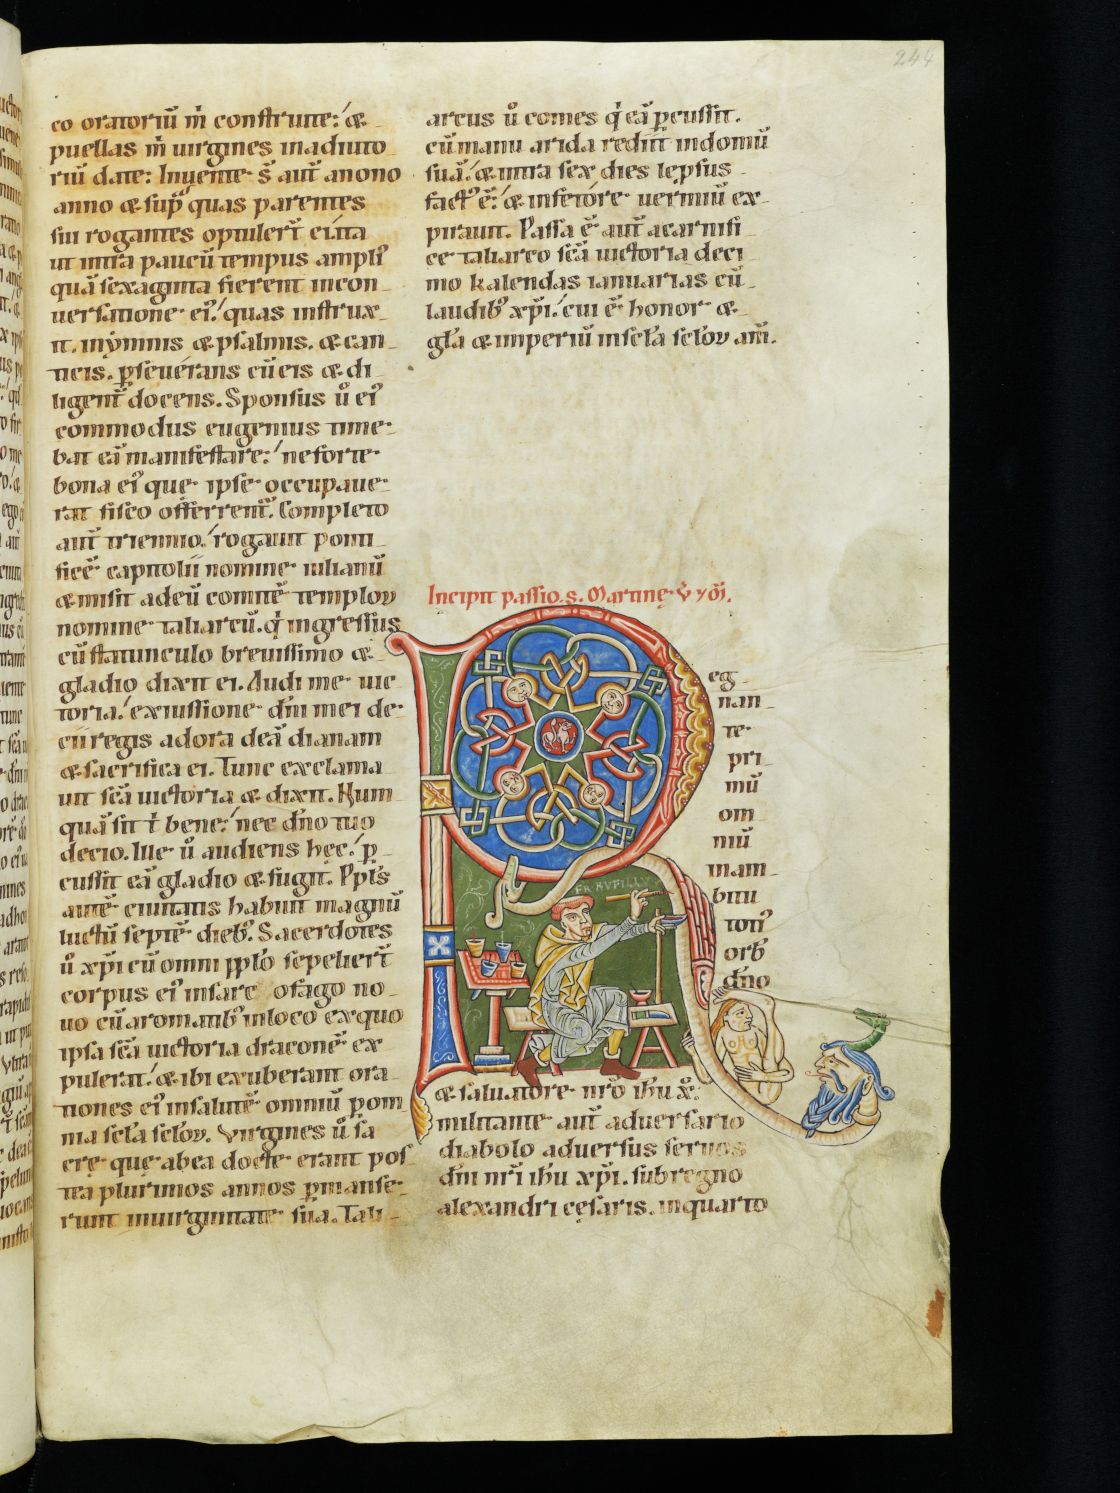 244
co oratoriū m̄ construite: &
puellas m̄ uirgines in adiuto
riū date: Inuente s̄ aut̄ anono
anno & sup̲ quas parentes
sui rogantes optuler̄t ei. ita
ut intra paucū tempus ampli᾽
quā sexaginta fierent in con
uersatione ei᾽: quas instrux
it in ẏmnis & psalmis. & can
ticis. p̲seuerans cū eis & di
ligent̄ docens. Sponsus ů ei᾽
commodus eugenius time
bat eā manifestare: ne forte
bona ei᾽ quę ipse occupaue
rat fisco offerrent̄. Completo
aut̄ triennio: rogauit ponti
ficē capitolii nomine iulianū
& misit ad eū comitē temploꝝ
nomine taliarcū. q̇ ingressus
cū statunculo breuissimo &
gladio dixit ei. Audi me uic
toria: ex iussione dn̄i mei de
cii regis adora deā dianam
& sacrifica ei. Tunc exclama
uit sc̄a uictoria & dixit. Num
quā sit t̄ bene: nec dn̄o tuo
decio. Iuc ů audiens hęc: p̲
cussit eā gladio & fugit. Pplś
autē ciuitatis habuit magnū
luctū septē dieb᾽. Sacerdotes
ů xp̄i cū omni pplo sepelier̄t
corpus ei᾽ in sarc ofago no
uo cū aromatib᾽ in loco ex quo
ipsa sc̄a uictoria draconē ex
pulerat: & ibi exuberant ora
tiones ei᾽ in salutē omniū p om
nia scła scłoꝝ. Virgines ů sa
crę quę ab ea doctę erant pos
tea plurimos annos p̲manse
runt in uirginitate sua. Tali
arcus ů comes q̇ eā p̲cussit.
cū manu arida rediit in domū
suā: & intra sex dies lepsus
fact᾽ ē: & in fetore uermiū ex
pirauit. Passa ē aut̄ a carnifi
ce taliarco sc̄a uictoria deci
mo kalendas ianuarias cū
laudib᾽ xp̄i: cui ē honor &
gła & imperiū in scła scłoꝝ am̄.
Incipit passio. s. Martinę. ṽ ⁊ m̄.
Reg
nan
te
pri
mū
om
niū
mam
bitu
toti᾽
orb
dn̄o
FR RVFILLV
& saluatore nr̄o ihu x̄.
militante aut̄ aduersario
diabolo aduersus seruos
dn̄i nr̄i ihu xp̄i. sub regno
alexandri cęsaris. in quarto